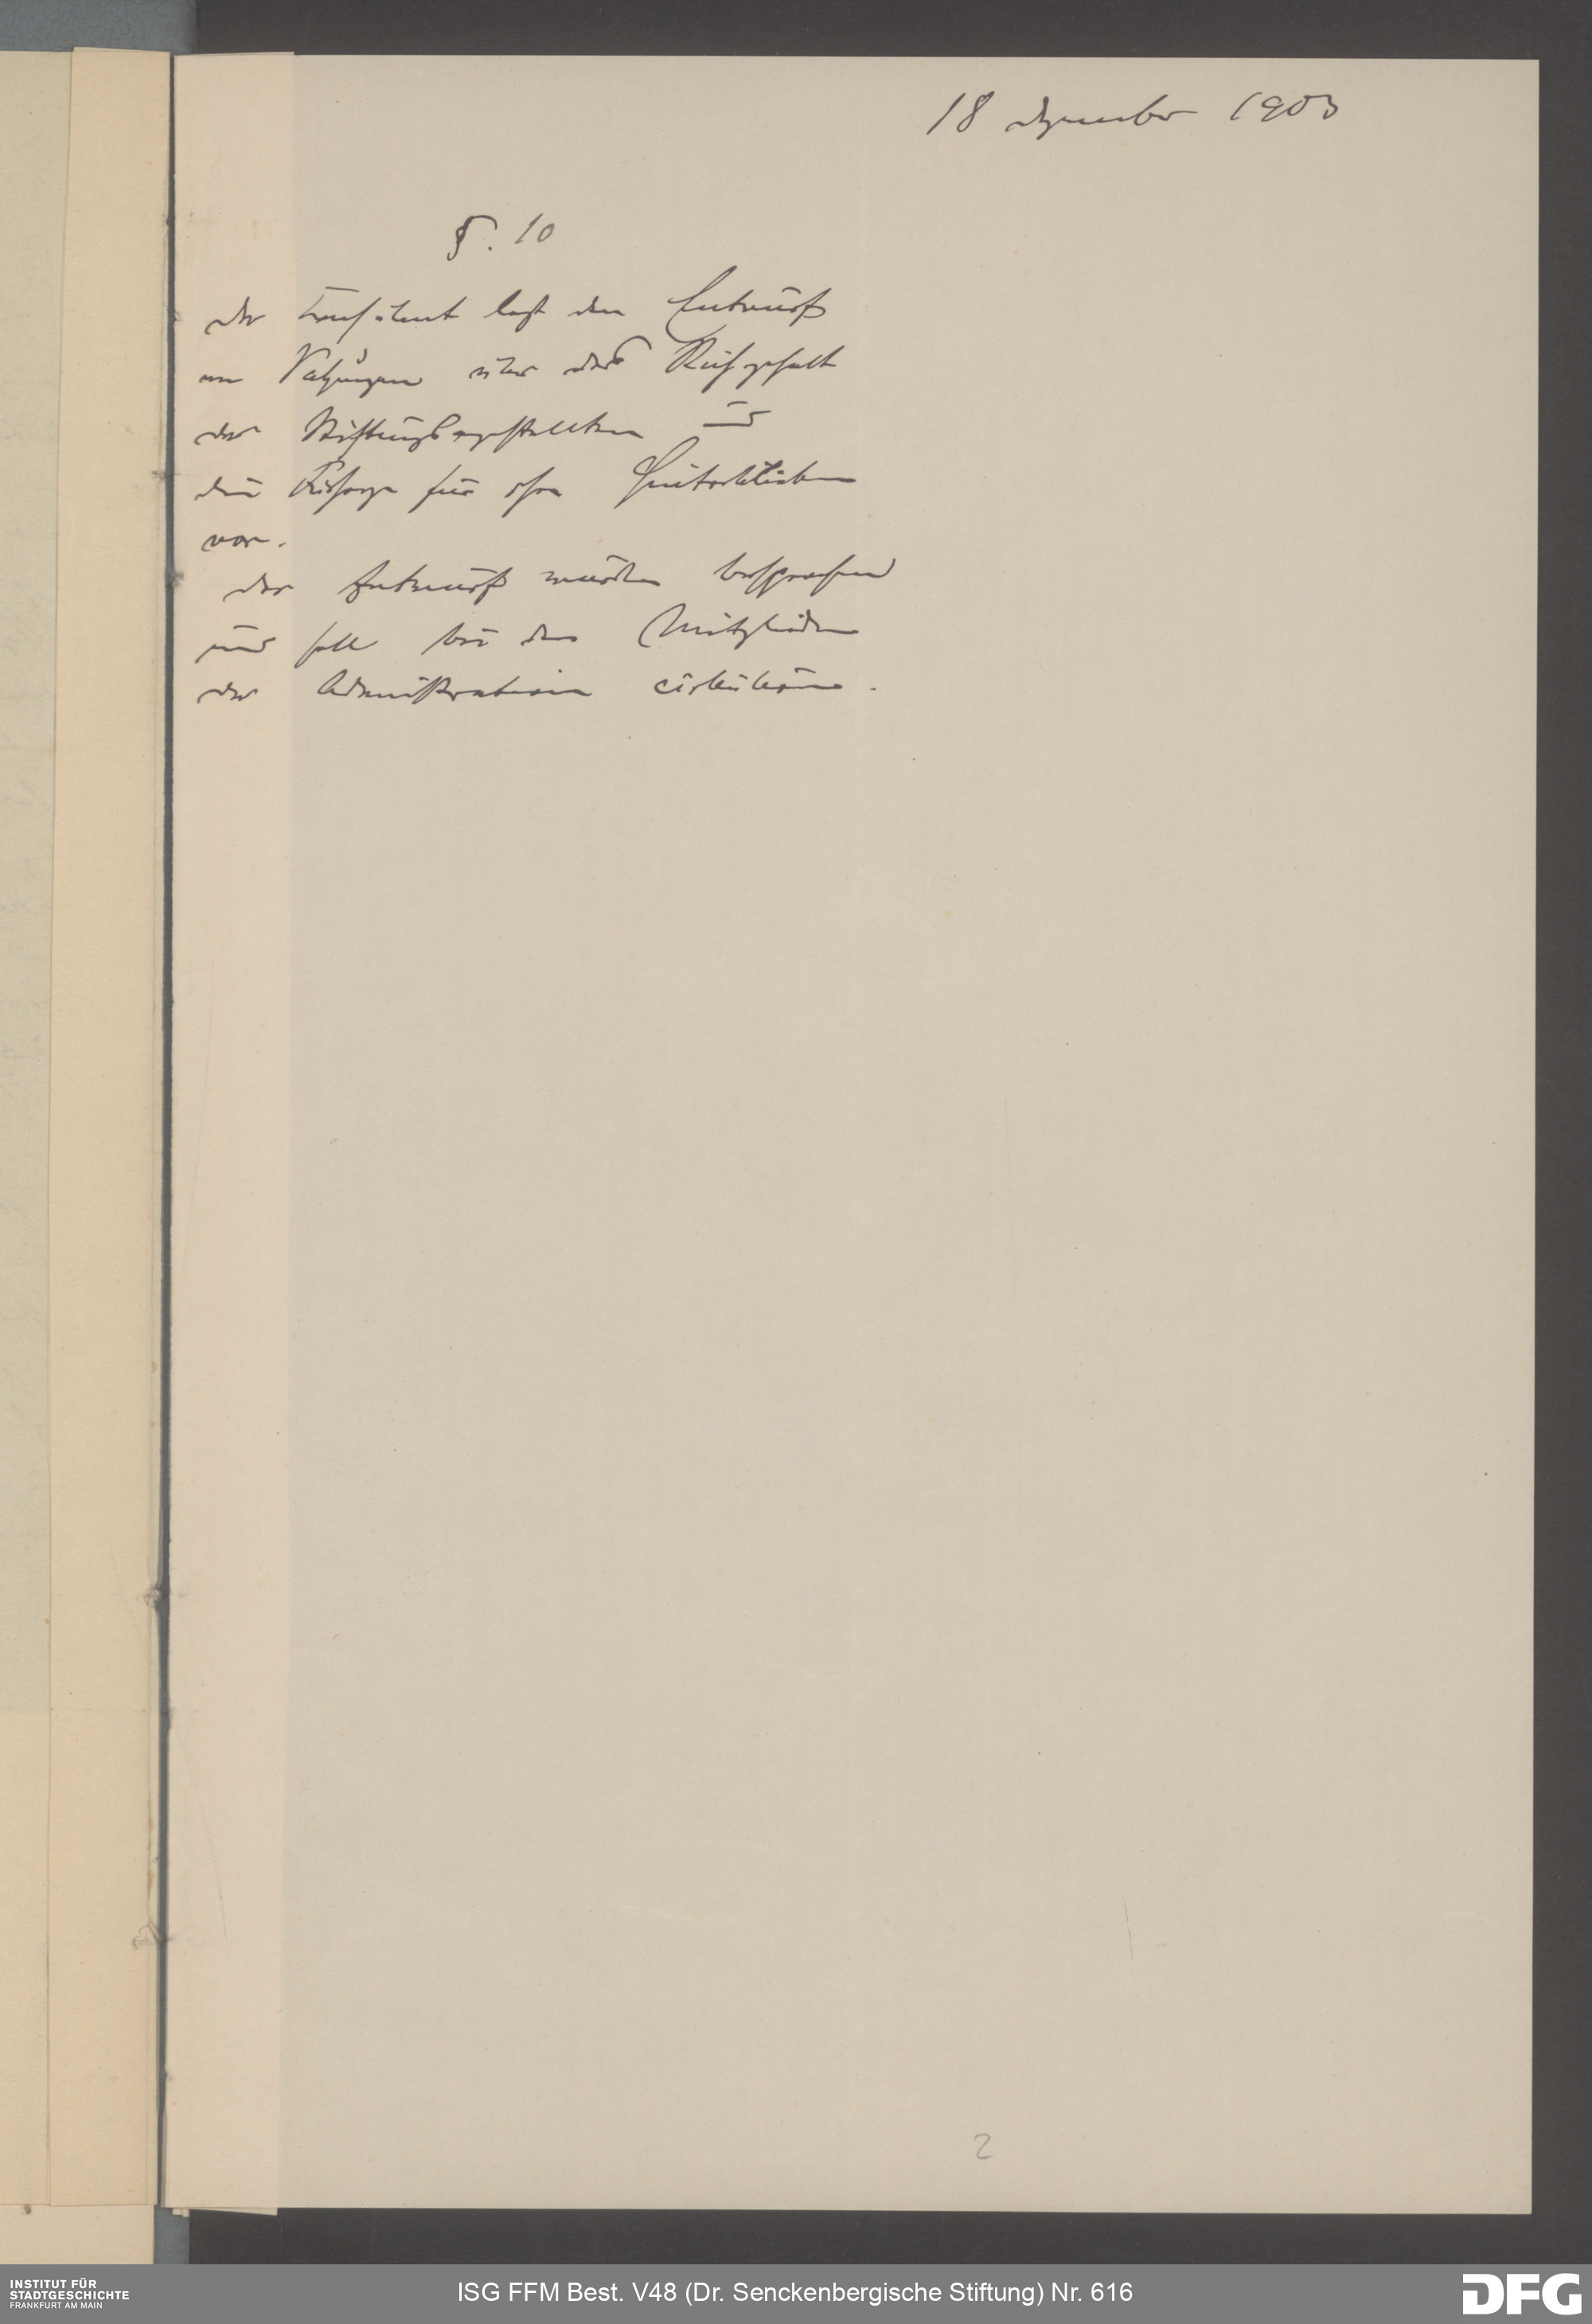 18 dezember 1903
§. 10
der Consulent legt den Entwurf
von Satzungen über das Ruhgehalt
der Stiftungsangestellten und
die Fürsorge für ihre Hinterbliebenen
vor.
der Entwurf wurde besprochen
und soll bei den Mitgliedern
der Administration cirkulieren.
2
INSTITUT FÜR
STADTGESCHICHTE
FRANKFURT AM MAIN
ISG FFM Best. V48 (Dr. Senckenbergische Stiftung) Nr. 616
DFG